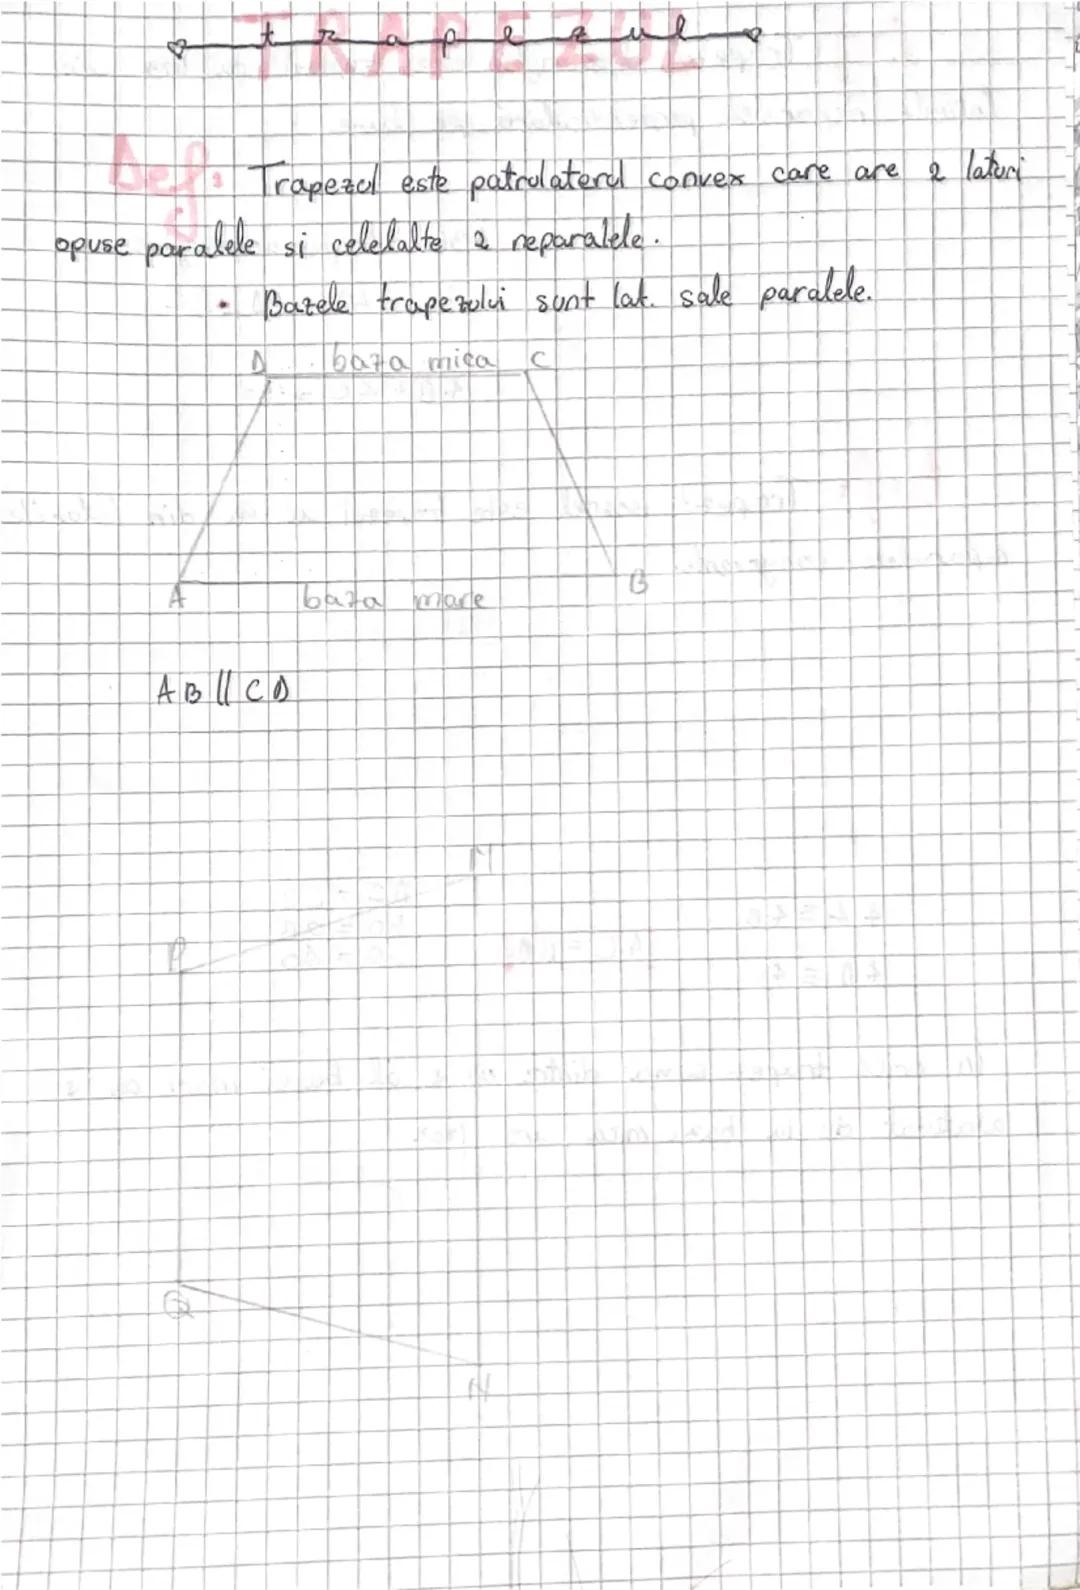 TRAPEZUL
trapezul
Def: Trapezul este patrulaterul convex care are 2 laturi
opuse paralele si celelalte 2 neparalele.
• Bazele trapezului sunt lat. sale paralele.
D baza mica C
A baza mare B
AB || CD
M
P
Q
N